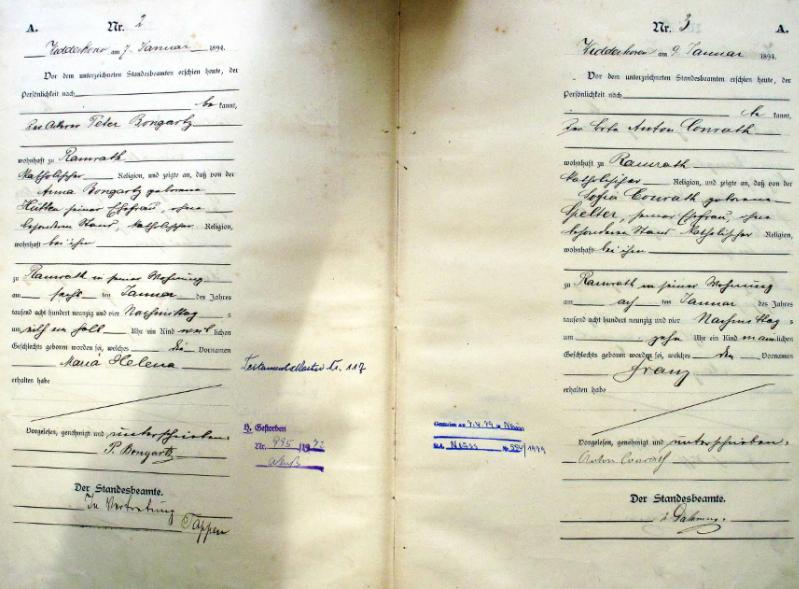 A. Nr. 2
am 7. Januar 1894.
Vor dem unterzeichneten Standesbeamten erschien heute, der
Persönlichkeit nach
be kannt,
der Ackerer Peter Bongartz
wohnhaft zu Ramrath
katholischer Religion, und zeigte an, daß von der
Anna Bongartz geborene
Hütten seiner Ehefrau, ohne
besonderen Stand, katholischer Religion,
wohnhaft bei ihm
zu Ramrath in seiner Wohnung
am sechsten Januar des Jahres
tausend acht hundert neunzig und vier Nachmittag s
um Uhr ein Kind weiblichen
Geschlechts geboren worden sei, welches die Vornamen
Maria Helena
erhalten habe
Vorgelesen, genehmigt und unterschrieben.
P. Bongartz
Der Standesbeamte.
In Vertretung
Tappen
Nr. 117
H. Gestorben
Nr. 995/1972
Nr. 3 A.
am 9. Januar 1894.
Vor dem unterzeichneten Standesbeamten erschien heute, der
Persönlichkeit nach
be kannt,
Anton Conrath
wohnhaft zu Ramrath
katholischer Religion, und zeigte an, daß von der
Sofia Conrath geborene
Spelter, seiner Ehefrau, ohne
besonderen Stand katholischer Religion,
wohnhaft bei ihm
zu Ramrath in seiner Wohnung
am achten Januar des Jahres
tausend acht hundert neunzig und vier Nachmittag s
um zehn Uhr ein Kind männlichen
Geschlechts geboren worden sei, welches den Vornamen
Franz
erhalten habe
Vorgelesen, genehmigt und unterschrieben.
Anton Conrath
Der Standesbeamte.
Gestorben am in Neuss
Neuss